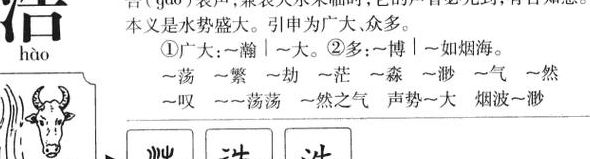 浩
hào
告(gào)表声,兼表大水来临时,它的声音必先到,有告知意。
本义是水势盛大。引申为广大、众多。
①广大:~瀚|~大。②多:~博|~如烟海。
~荡 ~繁 ~劫 ~茫 ~淼 ~渺 ~气 ~然
~叹 ~~荡荡 ~然之气 声势~大 烟波~渺
浩 浩